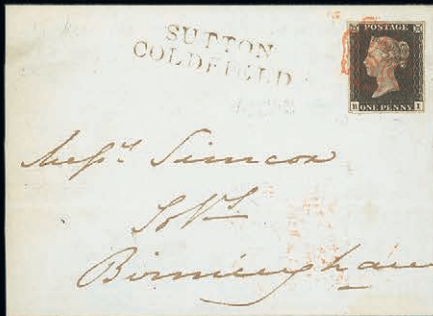 SUTTON
COLDFIELD
POSTAGE
B I
ONE PENNY
Messrs Simcox
Solrs
Birmingham